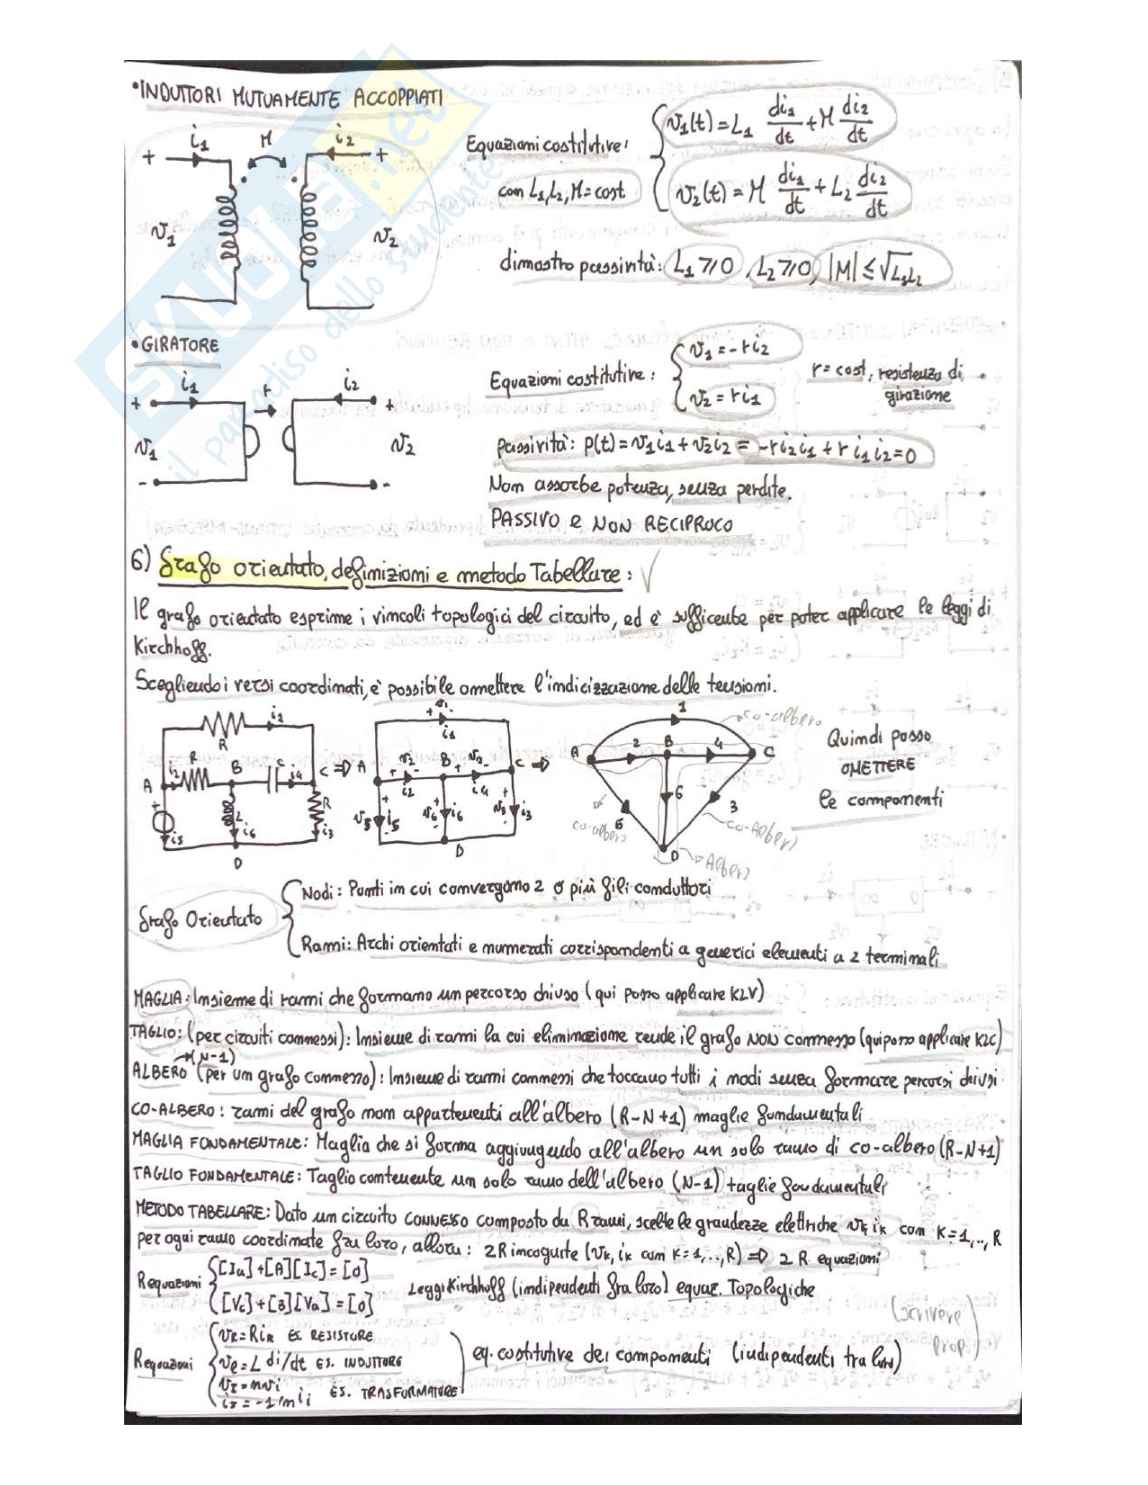 •INDUTTORI MUTUAMENTE ACCOPPIATI
i1 M i2
+ + 
v1 v2
Equazioni costitutive:
con L1, L2, M = cost
v1(t) = L1 di1/dt + M di2/dt
v2(t) = M di1/dt + L2 di2/dt
dimostro passività: L1 ≥ 0, L2 ≥ 0, |M| ≤ √L1L2
SKUOLA.net
il paradiso dello studente
•GIRATORE
i1 r i2
+ +
v1 v2
- -
Equazioni costitutive:
v1 = -r i2
v2 = r i1
r = cost, resistenza di
girazione
passività: p(t) = v1i1 + v2i2 = -r i2 i1 + r i1 i2 = 0
Non assorbe potenza, senza perdite.
PASSIVO e NON RECIPROCO
6) Grafo orientato, definizioni e metodo Tabellare:
Il grafo orientato esprime i vincoli topologici del circuito, ed è sufficente per poter applicare le leggi di
Kirchhoff.
Scegliendo i versi coordinati, è possibile omettere l'indicizzazione delle tensioni.
R i1
A i2 R B C i4 C ⇒
+ i5 L i6 R i3
D
i1
A v2 i2 B i4 C ⇒
v5 i5 v6 i6 v3 i3
D
1 co-albero
A 2 B 4 C
5 6 3
co-albero D Albero co-albero
Quindi posso
OMETTERE
le componenti
Grafo Orientato
Nodi: Punti in cui convergono 2 o più fili conduttori
Rami: Archi orientati e numerati corrispondenti a generici elementi a 2 terminali
MAGLIA: Insieme di rami che formano un percorso chiuso (qui posso applicare KLV)
TAGLIO: (per circuiti connessi): Insieme di rami la cui eliminazione rende il grafo NON connesso (qui posso applicare KLC)
→(N-1)
ALBERO (per un grafo connesso): Insieme di rami connessi che toccano tutti i nodi senza formare percorsi chiusi
CO-ALBERO: rami del grafo non appartenenti all'albero (R-N+1) maglie fondamentali
MAGLIA FONDAMENTALE: Maglia che si forma aggiungendo all'albero un solo ramo di co-albero (R-N+1)
TAGLIO FONDAMENTALE: Taglio contenente un solo ramo dell'albero (N-1) taglie fondamentali
METODO TABELLARE: Dato un circuito CONNESSO composto da R rami, scelte le grandezze elettriche vk, ik con K=1,..,R
per ogni ramo coordinate fra loro, allora: 2R incognite (vk, ik con K=1,..,R) ⇒ 2 R equazioni
R equazioni
[Ia]+[A][Ic]=[0]
[Vc]+[B][Va]=[0]
Leggi Kirchhoff (indipendenti fra loro) equaz. Topologiche
R equazioni
vR = R iR ES RESISTORE
ve = L di/dt ES. INDUTTORE
vI = n vi
iI = -1/n ii ES. TRASFORMATORE
eq. costitutive dei componenti (indipendenti tra loro)
(scrivere
prop.)